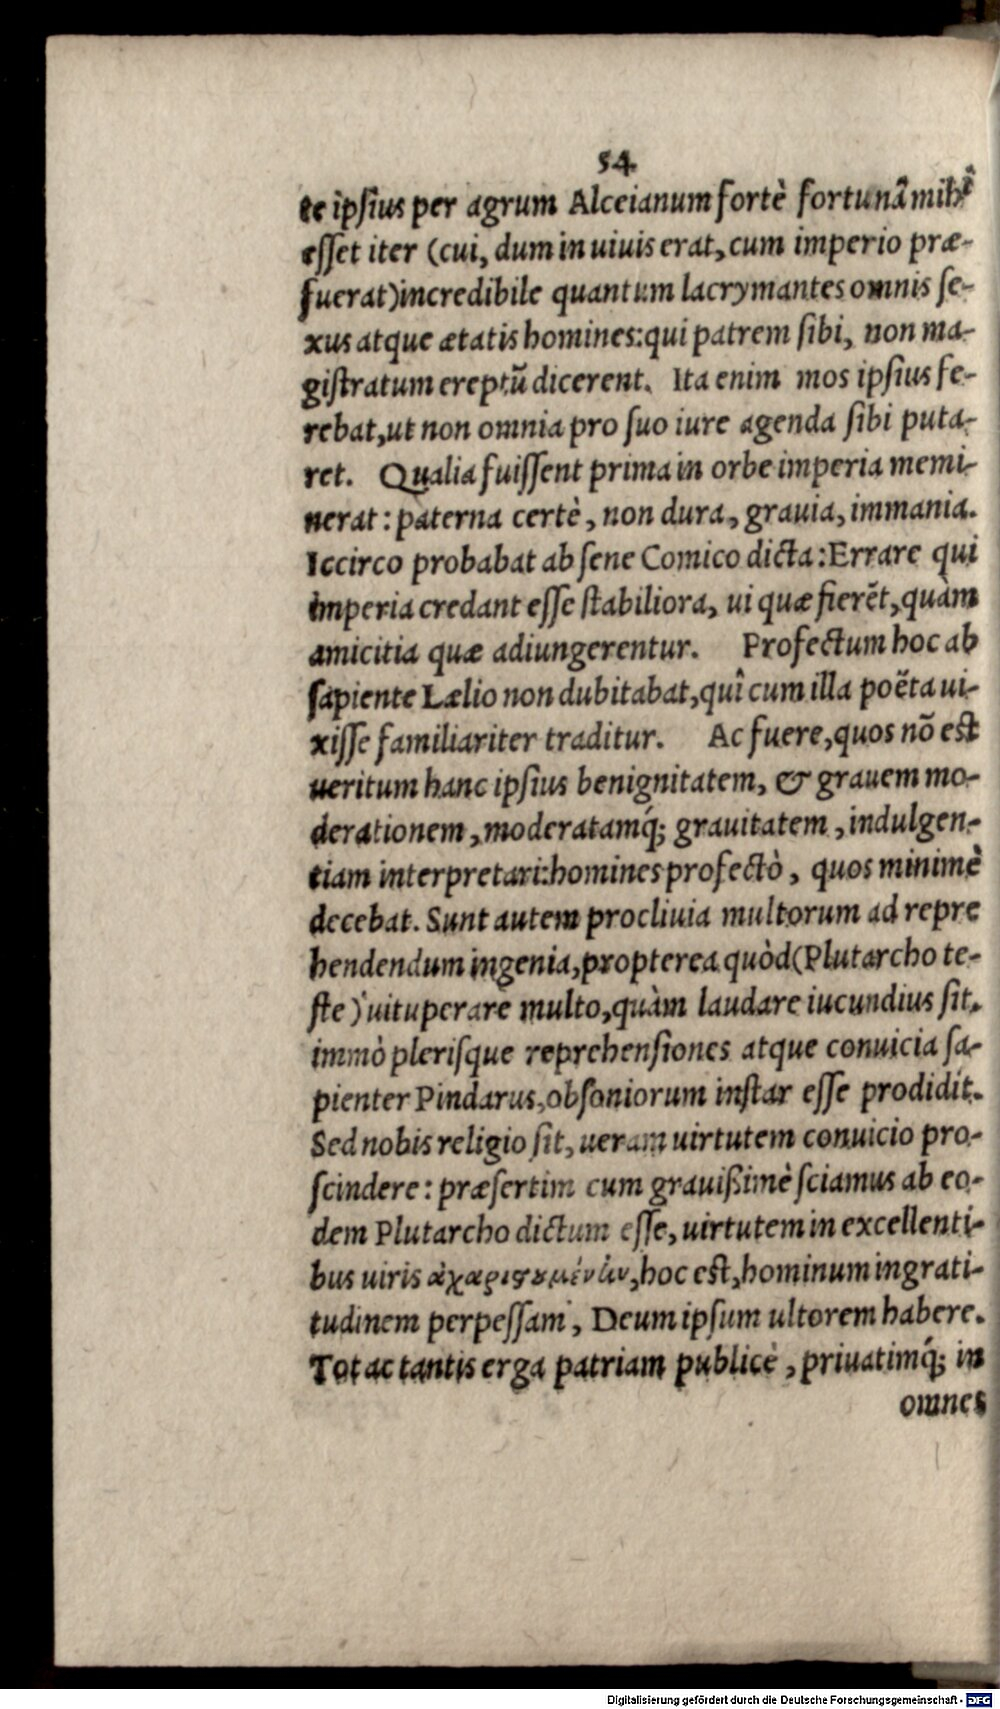 54
te ipsius per agrum Alceianum fortè fortunã mihi
esset iter (cui, dum in uiuis erat, cum imperio præ-
fuerat) incredibile quantum lacrymantes omnis se-
xus atque ætatis homines: qui patrem sibi, non ma-
gistratum ereptũ dicerent. Ita enim mos ipsius fe-
rebat, ut non omnia pro suo iure agenda sibi puta-
ret. Qualia fuissent prima in orbe imperia memi-
nerat: paterna certè, non dura, grauia, immania.
Iccirco probabat ab sene Comico dicta: Errare qui
imperia credant esse stabiliora, ui quæ fierẽt, quàm
amicitia quæ adiungerentur. Profectum hoc ab
sapiente Lælio non dubitabat, quî cum illa poëta ui-
xisse familiariter traditur. Ac fuere, quos nõ est
ueritum hanc ipsius benignitatem, & grauem mo-
derationem, moderatamq́; grauitatem, indulgen-
tiam interpretari: homines profectò, quos minimè
decebat. Sunt autem procliuia multorum ad repre
hendendum ingenia, propterea quòd (Plutarcho te-
ste) uituperare multo, quàm laudare iucundius sit.
immò plerisque reprehensiones atque conuicia sa-
pienter Pindarus, obsoniorum instar esse prodidit.
Sed nobis religio sit, ueram uirtutem conuicio pro-
scindere: præsertim cum grauißimè sciamus ab eo-
dem Plutarcho dictum esse, uirtutem in excellenti-
bus uiris hoc est, hominum ingrati-
tudinem perpessam, Deum ipsum ultorem habere.
Tot ac tantis erga patriam publicè, priuatimq́; in
omnes
Digitalisierung gefördert durch die Deutsche Forschungsgemeinschaft - DFG